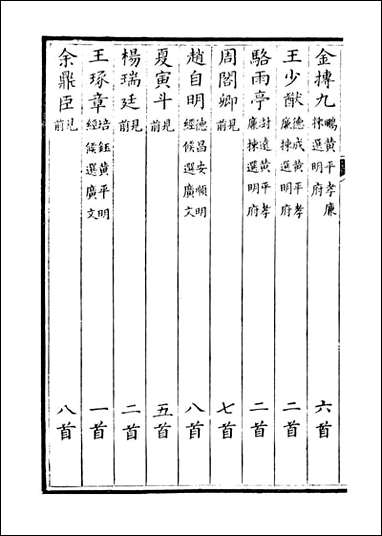 金摶九 鵬黃平孝廉揀選明府 六首
王少猷 德成黃平孝廉揀選明府 二首
駱雨亭 封遠黃平孝廉揀選明府 二首
周閣卿 見前 七首
趙自明 德昌安順明經候選廣文 八首
夏寅斗 見前 五首
楊瑞廷 見前 二首
王琢章 培鈺黃平明經候選廣文 一首
余鼎臣 見前 八首